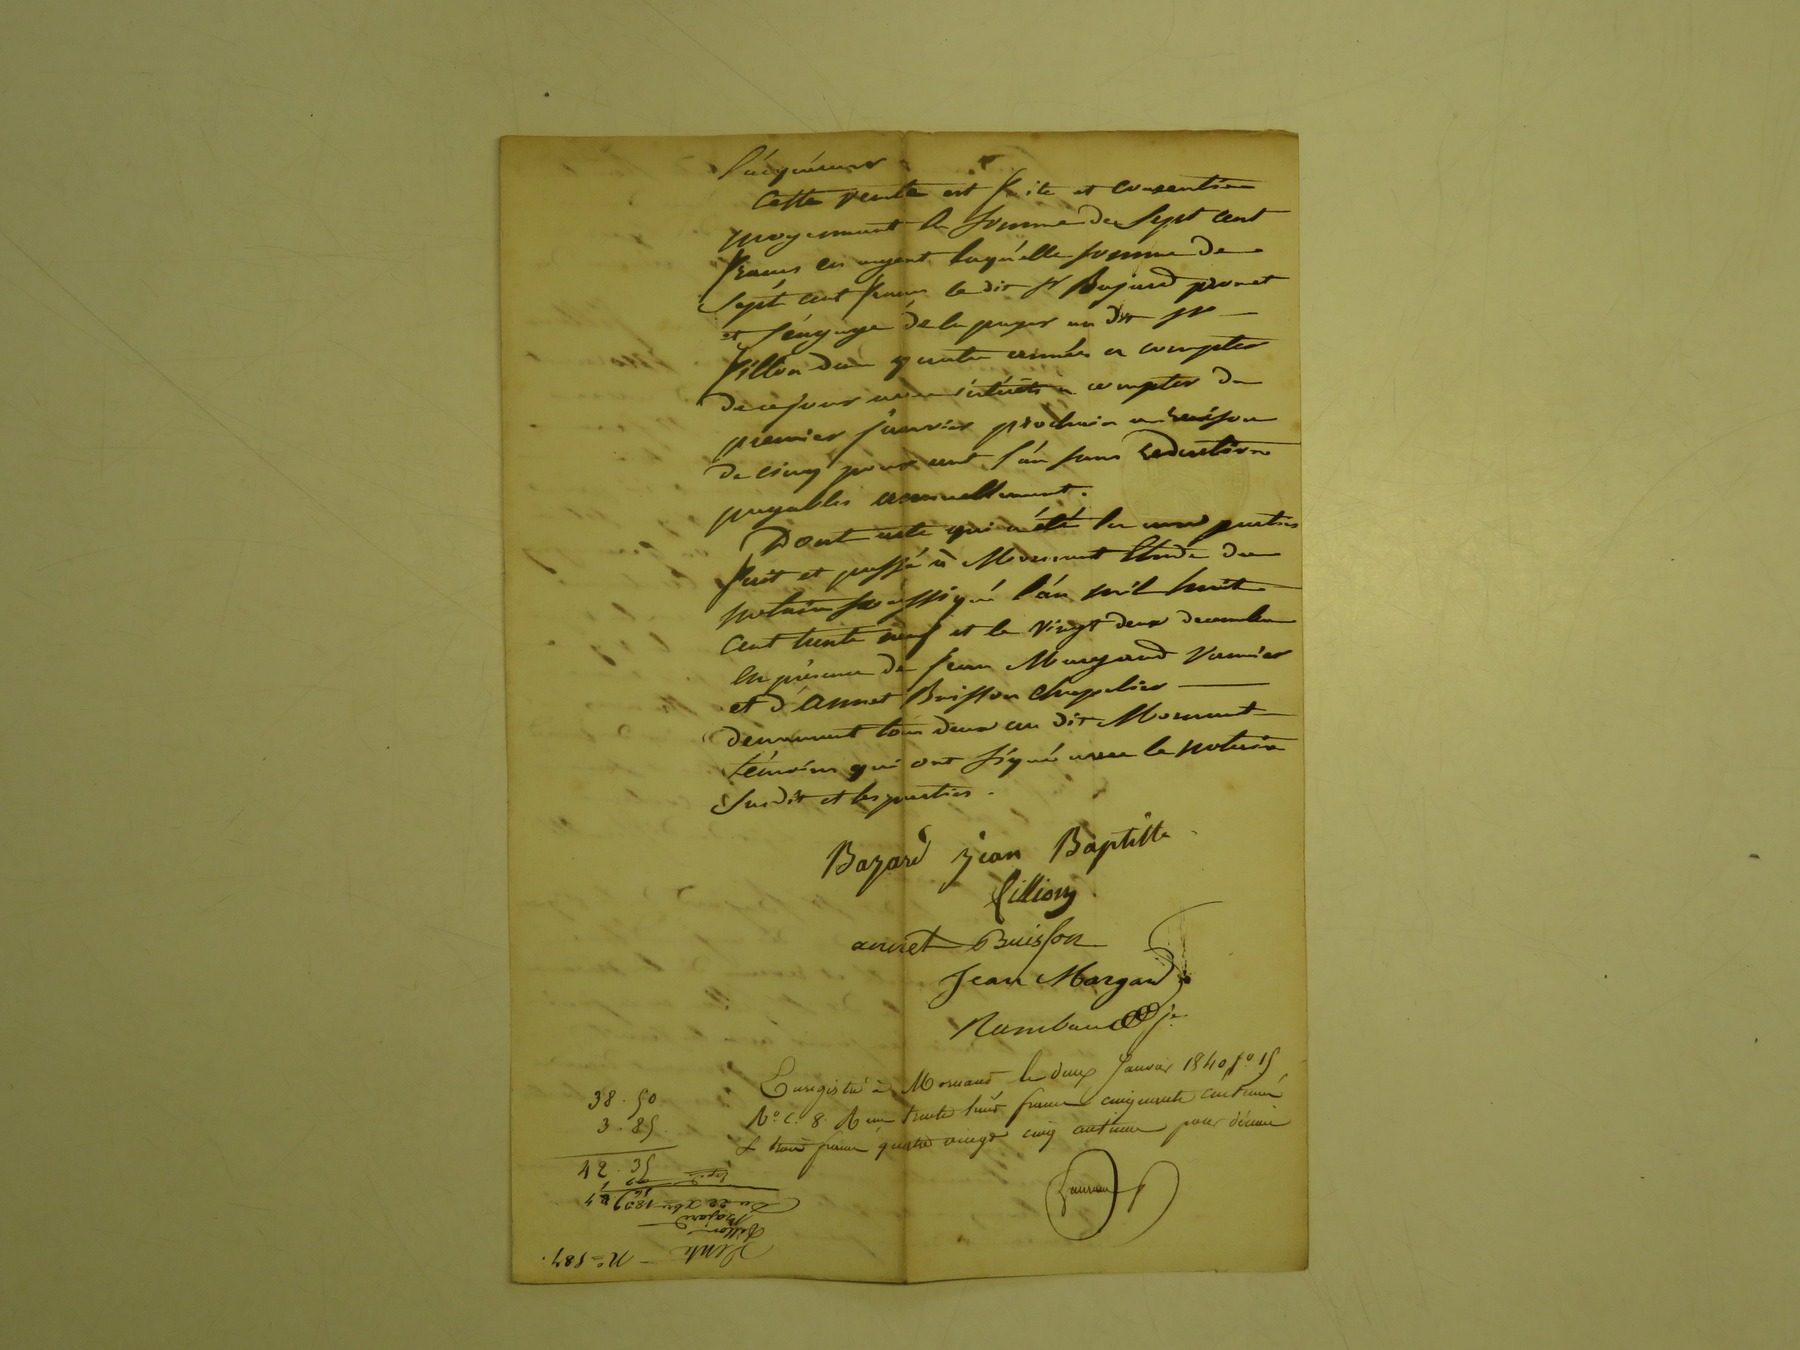 l'acquéreur
Cette vente est faite et consentie
moyennant la somme de Sept cent
francs en argent laquelle somme de
Sept cent francs le dit Sr Bajard promet
et s'engage de la payer au dit Sr
fillon dans quatre années a compter
de ce jour avec intérêts a compter du
premier janvier prochain a raison
de cinq pour cent l'an sans reduction
payables annuellement.
Dont acte qui a été lu aux parties
fait et passé à Mornant Etude du
notaire soussigné l'an mil huit
cent trente neuf et le vingt deux decembre
en présence de jean Margand vannier
et d'annet Buisson chapelier
demeurant tous deux au dit Mornant
témoins qui ont signé avec le notaire
susdit et les parties.
Bazard jean Baptiste
fillion
annet Buisson
Jean Margand
Rambaud je
Enregistré à Mornant le deux Janvier 1840 fo 15
No C. 8. R eçu trente huit francs cinquante centimes
& trois francs quatre vingt cinq centimes pour décime
38.50
3.85
42.35
No 587.
Vente
fillon
Bajard
Du 22 Xbre 1839